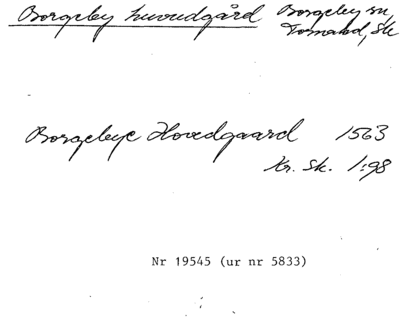 Borgeby huvudgård Borgeby sn,
Torna hd, Sk
Borgebye Hovedgaard 1563
Kr. Sk. 1:98
Nr 19545 (ur nr 5833)